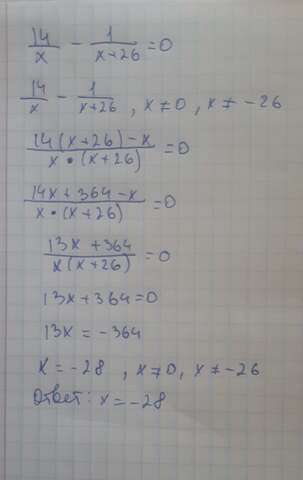 14/x − 1/(x+26) = 0
14/x − 1/(x+26) , x ≠ 0 , x ≠ −26
(14(x+26)−x)/(x•(x+26)) = 0
(14x+364−x)/(x•(x+26)) = 0
(13x+364)/(x(x+26)) = 0
13x+364=0
13x = −364
x = −28 , x ≠ 0, x ≠ −26
Ответ: x = −28